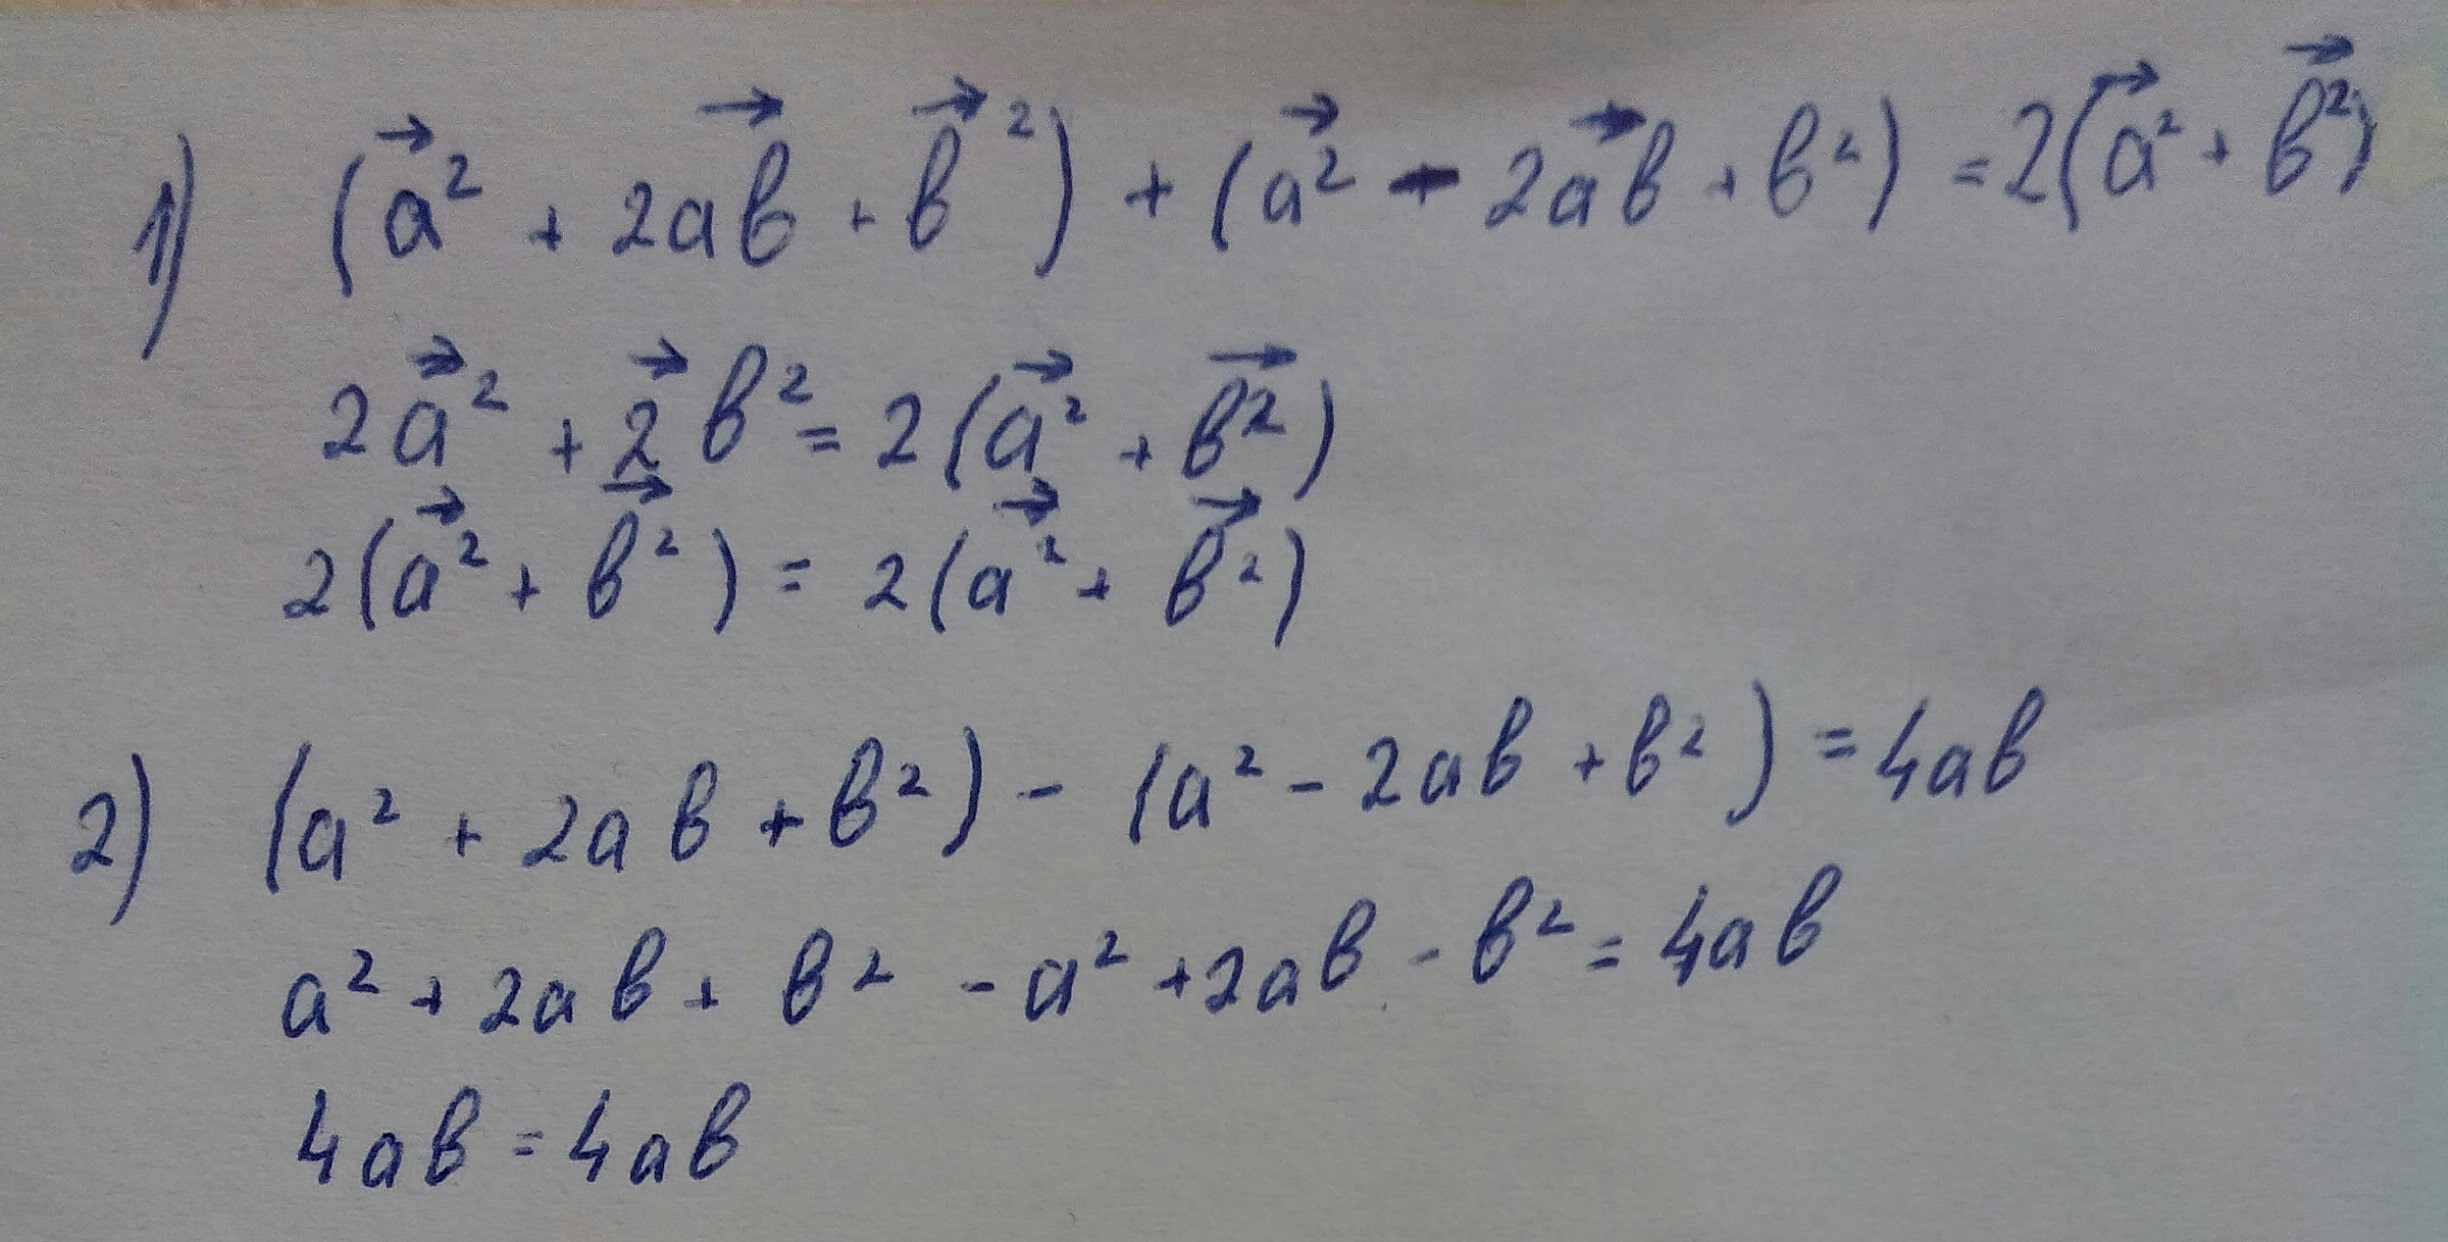 1) (a⃗² + 2ab⃗ + b⃗²) + (a⃗² - 2a⃗b + b²) = 2(a⃗² + b⃗²)
2a⃗² + 2⃗b² = 2(a⃗² + b⃗²)
2(a⃗² + b⃗²) = 2(a⃗² + b⃗²)
2) (a² + 2ab + b²) - (a² - 2ab + b²) = 4ab
a² + 2ab + b² - a² + 2ab - b² = 4ab
4ab = 4ab